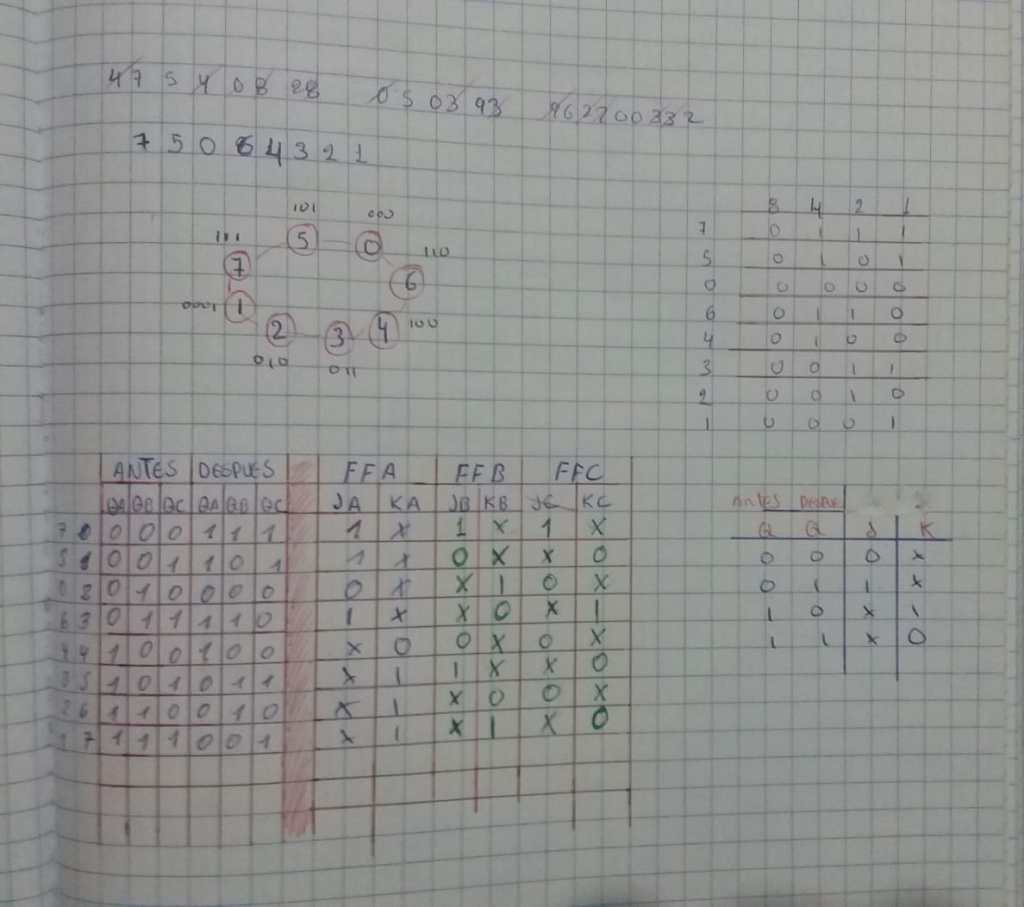 4 7 5 4 0 8 28 0 5 03 93 962200332
7 5 0 6 4 3 2 1
101 000
111 5 0 110
7 6
0001 1 2 3 4 100
010 011
8 4 2 1
7 0 1 1 1
5 0 1 0 1
0 0 0 0 0
6 0 1 1 0
4 0 1 0 0
3 0 0 1 1
2 0 0 1 0
1 0 0 0 1
ANTES DESPUES FFA FFB FFC
QA QB QC QA QB QC JA KA JB KB JC KC
7 0 0 0 0 1 1 1 1 X 1 X 1 X
5 1 0 0 1 1 0 1 1 X 0 X X 0
0 2 0 1 0 0 0 0 0 X X 1 0 X
6 3 0 1 1 1 1 0 1 X X 0 X 1
4 4 1 0 0 1 0 0 X 0 0 X 0 X
3 5 1 0 1 0 1 1 X 1 1 X X 0
2 6 1 1 0 0 1 0 X 1 X 0 0 X
1 7 1 1 1 0 0 1 X 1 X 1 X 0
Antes Despue
Q Q J K
0 0 0 X
0 1 1 X
1 0 X 1
1 1 X 0